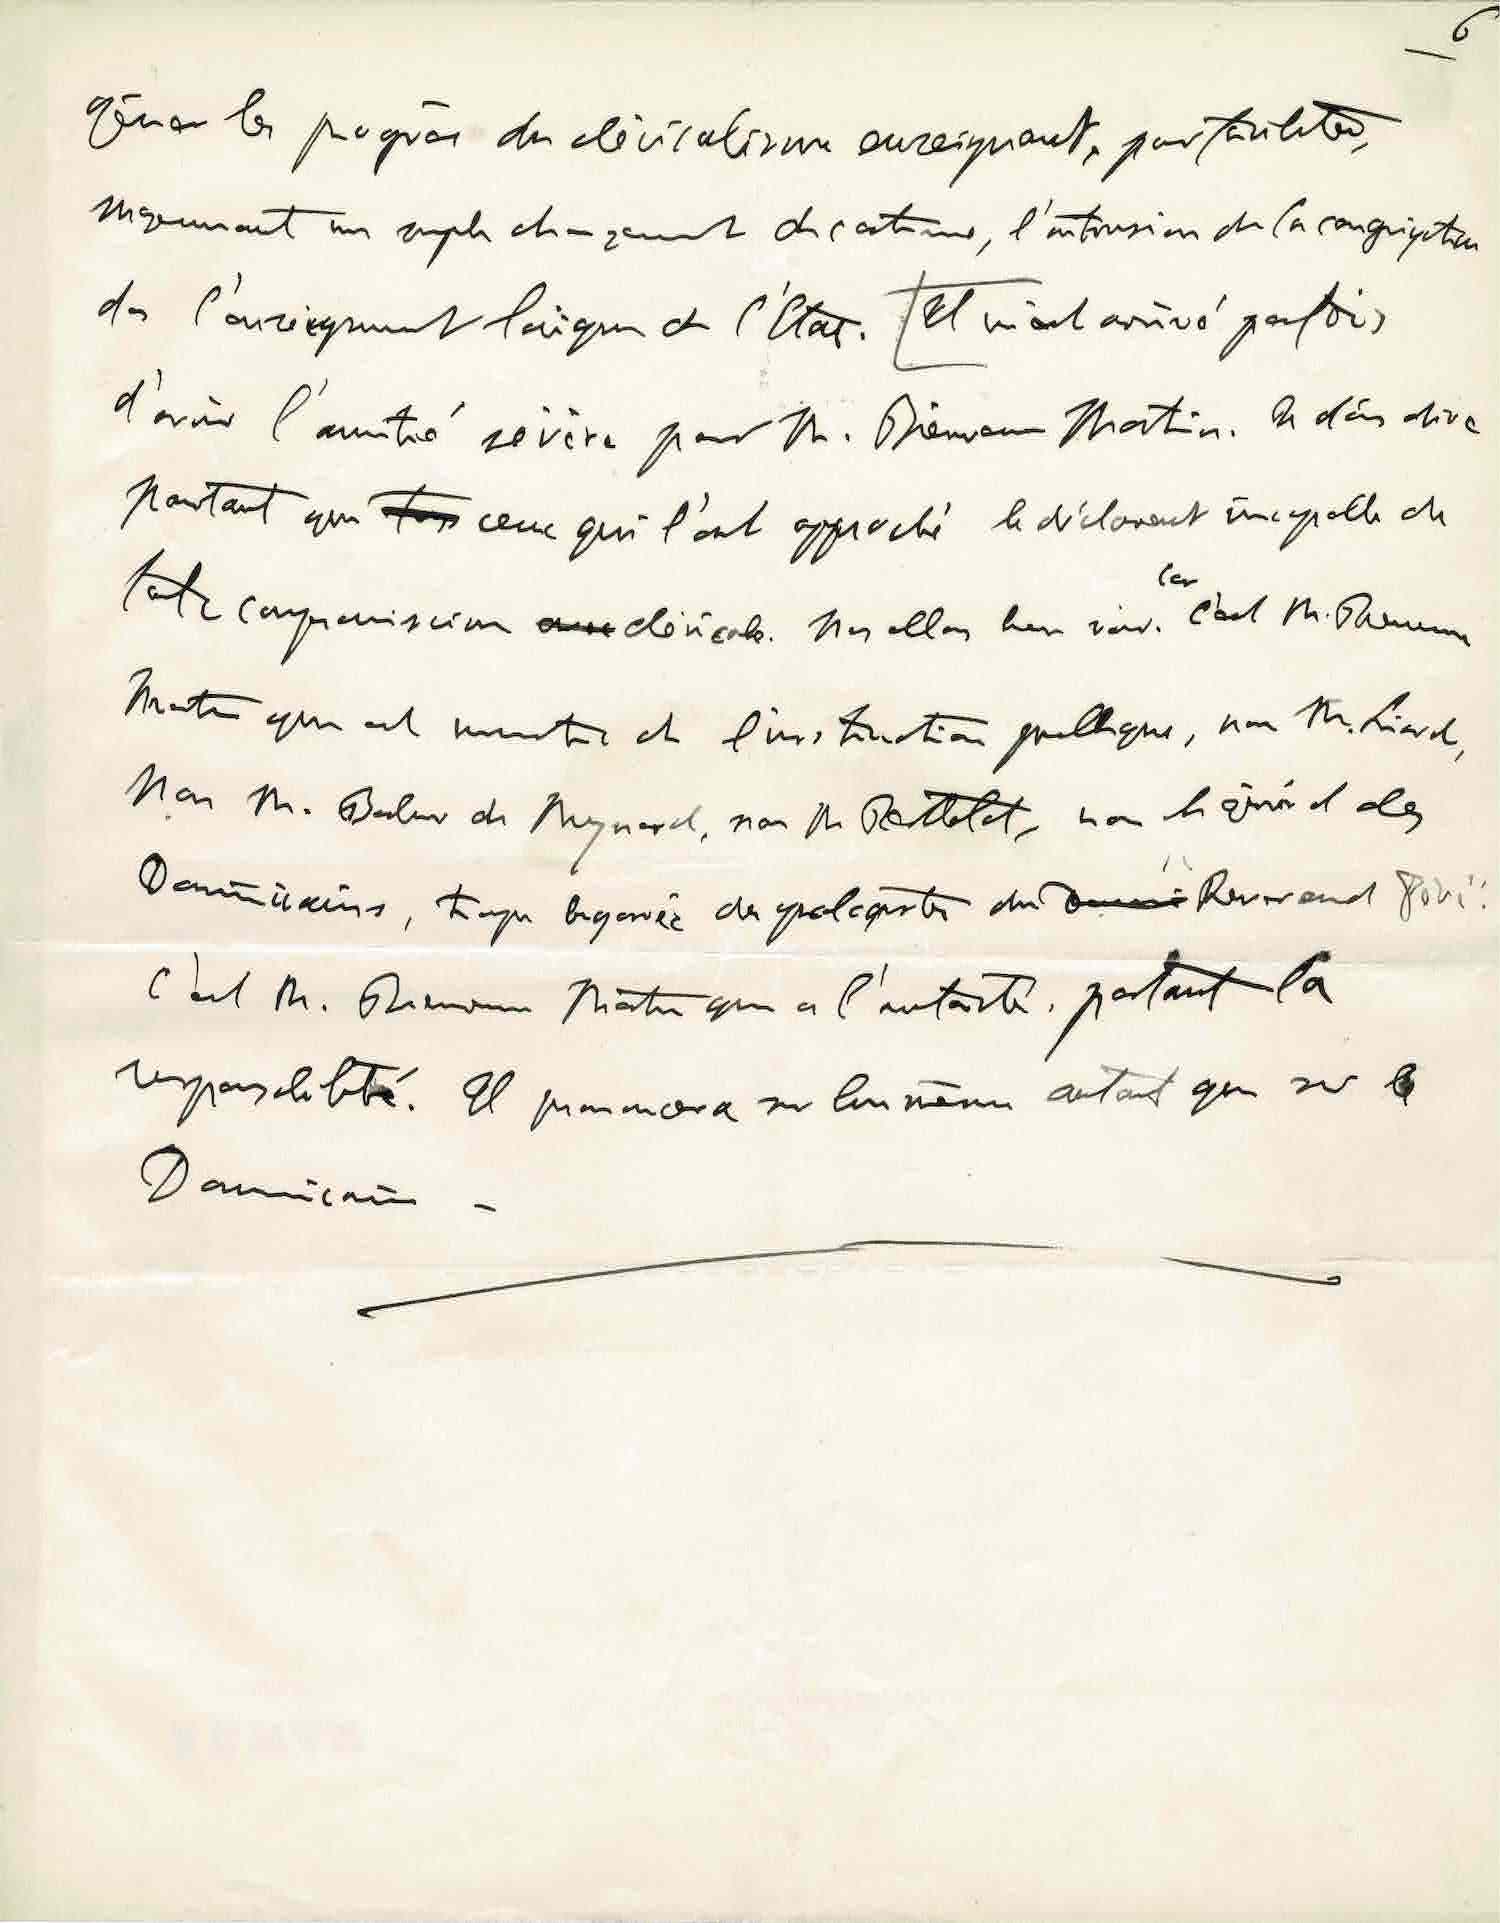 6
gêner les progrès du cléricalisme enseignant, pour faciliter,
moyennant un simple changement de costume, l'intrusion de la congrégation
dans l'enseignement laïque de l'État. [Il m'est arrivé parfois
d'avoir l'amitié sévère pour M. Bienvenu Martin. Je dois dire
pourtant que ceux qui l'ont approché le déclarent incapable de
toute compromission cléricale. Nous allons bien voir. car c'est M. Bienvenu
Martin qui est ministre de l'instruction publique, non M. Liard,
non M. de non M. Berthelot, non le général des
Dominicains, du Révérend Père.
C'est M. Bienvenu Martin qui a l'autorité, partant la
responsabilité. Il prononcera sur lui même autant que sur le
Dominicain -